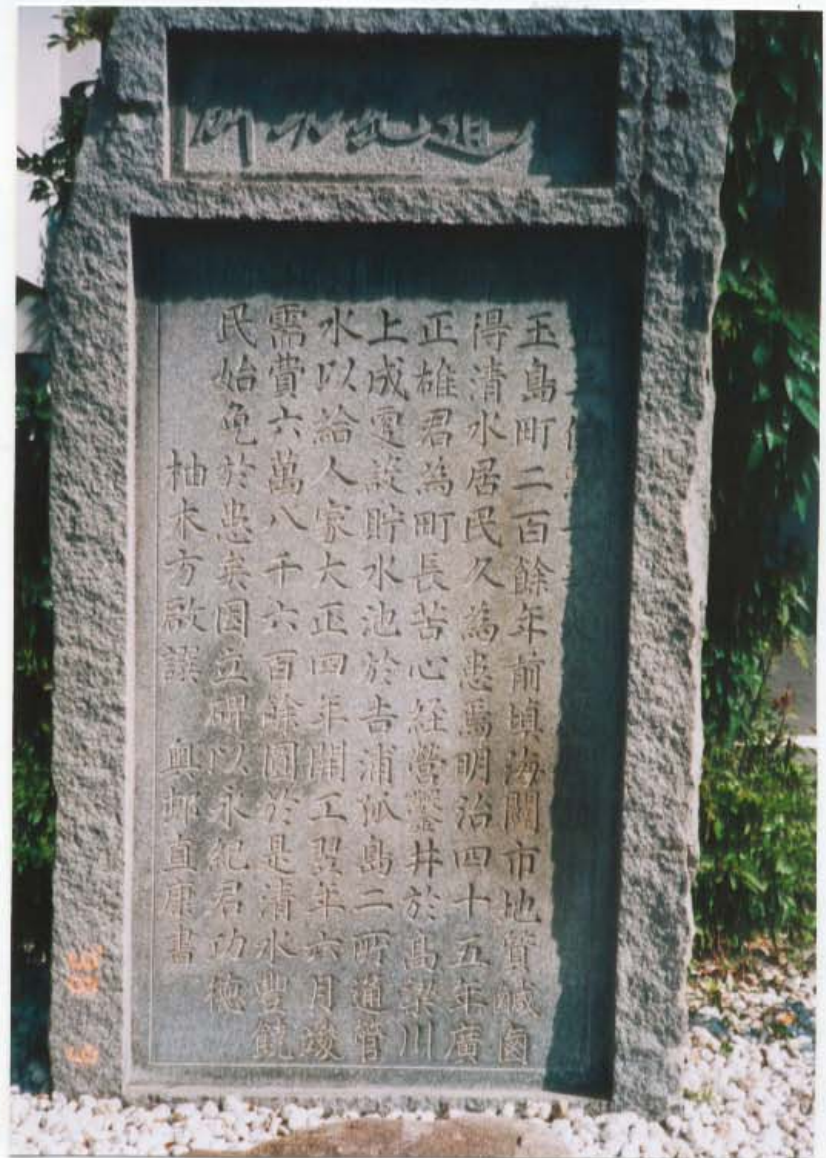 玉島町二百餘年前塡海闢市地質鹹鹵
得清水居民久為患焉明治四十五年廣
正雄君為町長苦心経營鑿井於高梁川
上成更設貯水池於吉浦狐島二所通管
水以給人家大正四年開工翌年六月竣
需費六萬八千六百餘圓於是清水豐饒
民始免於患矣因立碑以永紀君功德
柚木方啟譔 奥邨直康書